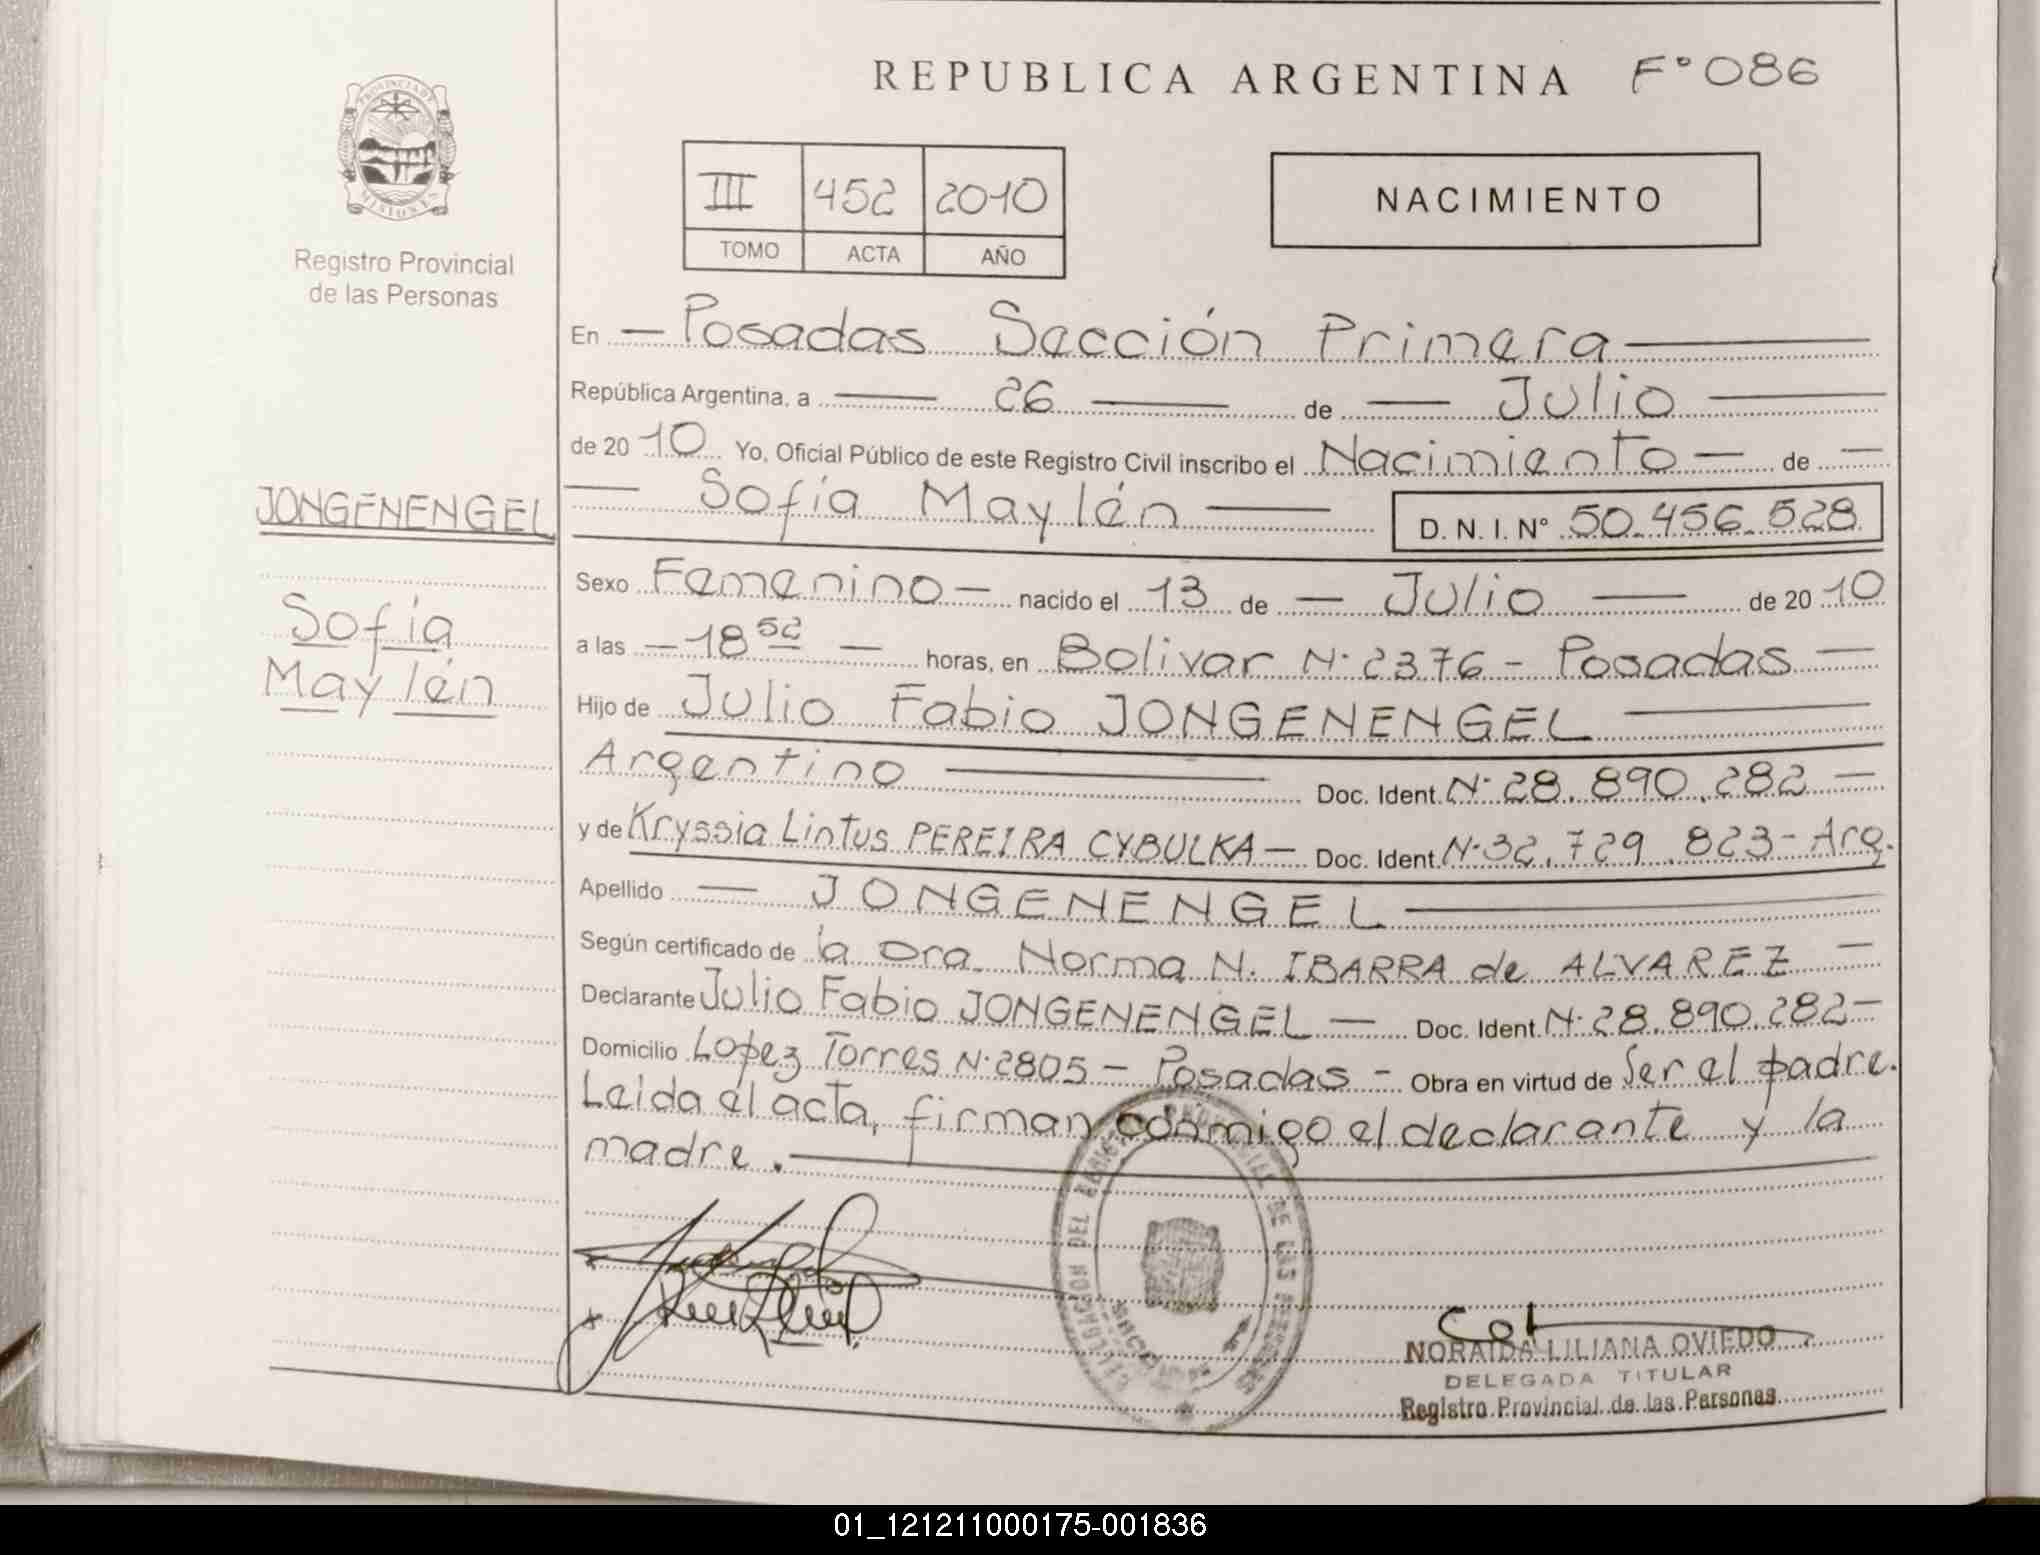 REPUBLICA ARGENTINA F° 086
PROVINCIA DE
MISIONES
Registro Provincial
de las Personas
III 452 2010
TOMO ACTA AÑO
NACIMIENTO
En Posadas Sección Primera
República Argentina, a 26 de Julio
de 2010 Yo, Oficial Público de este Registro Civil inscribo el Nacimiento de
JONGENENGEL
Sofía Maylén D. N. I. N° 50.456.528
Sofía
Maylén
Sexo Femenino nacido el 13 de Julio de 2010
a las 18 52 horas, en Bolivar N° 2376 - Posadas
Hijo de Julio Fabio JONGENENGEL
Argentino Doc. Ident. N° 28.890.282
y de Kryssia Lintus PEREIRA CYBULKA Doc. Ident. N° 32.729.823 - Arg.
Apellido JONGENENGEL
Según certificado de la Dra. Norma N. IBARRA de ALVAREZ
Declarante Julio Fabio JONGENENGEL Doc. Ident. N° 28.890.282
Domicilio Lopez Torres N° 2805 - Posadas - Obra en virtud de Ser el padre.
Leida el acta, firman conmigo el declarante y la
madre.
NORAIDA LILIANA OVIEDO
DELEGADA TITULAR
Registro Provincial de las Personas
01_121211000175-001836